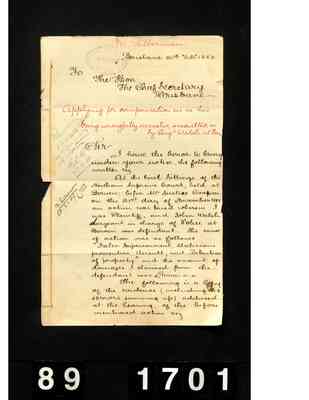 Brisbane
To
The Hon
The Chief Secretary
Brisbane
Applying for compensation in re his
being wrongfully arrested
by Serg Welch at
Sir
I have the honor to bring
under your notice the following
matter viz
At the last Sittings of the
Northern Supreme Court, held at
Bowen, before Mr Justice Cooper
on the day of November
an action was heard wherein I
was Plaintiff, and John Welch
Sergeant in charge of Police at
Bowen was defendant. The cause
of action was as follows
"False Imprisonment Malicious
prosecution Assault, and Detention
of property" and the amount of
damages I claimed from the
defendant was
The following is a Copy
of the evidence (including the
summing up) adduced
at the hearing of the before
mentioned action viz
89 1701